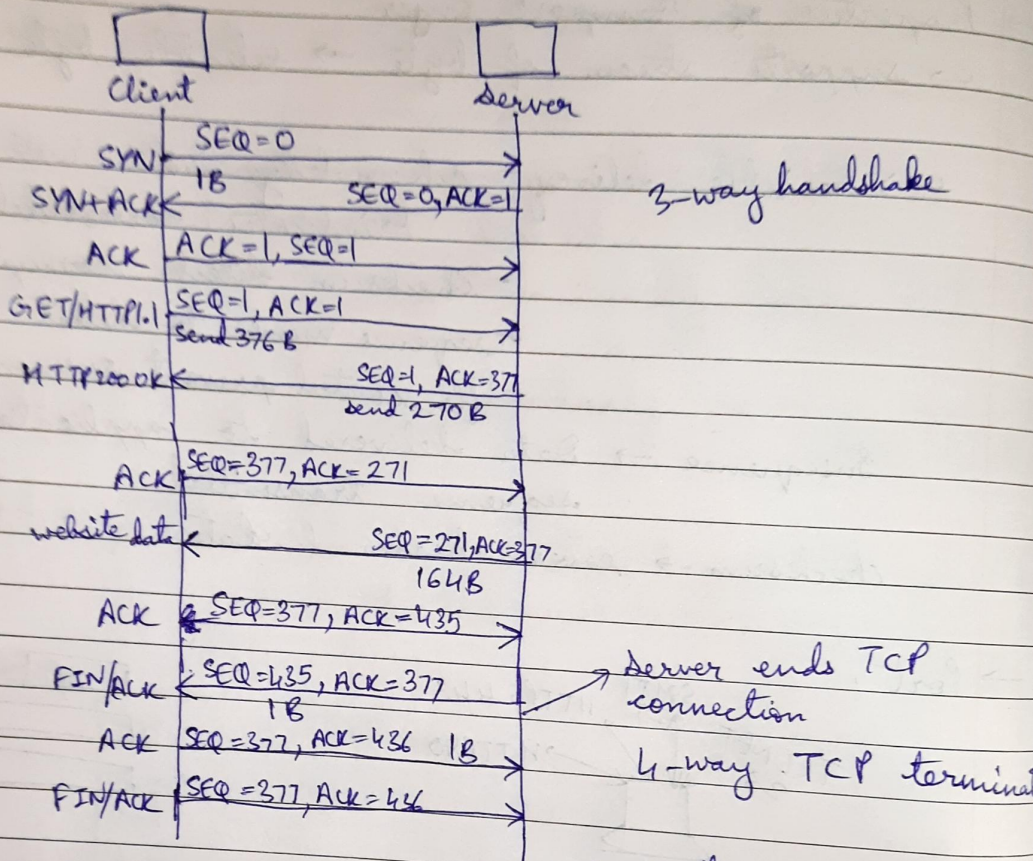 Client
Server
SYN
SEQ=0
1B
SYN+ACK
SEQ=0, ACK=1
3-way handshake
ACK
ACK=1, SEQ=1
GET/HTTP1.1
SEQ=1, ACK=1
Send 376 B
HTTP200 OK
SEQ=1, ACK=377
send 270 B
ACK
SEQ=377, ACK=271
website data
SEQ=271, ACK=377
164B
ACK
SEQ=377, ACK=435
FIN/ACK
SEQ=435, ACK=377
1B
Server ends TCP
connection
ACK
SEQ=377, ACK=436 1B
4-way TCP terminat
FIN/ACK
SEQ=377, ACK=436